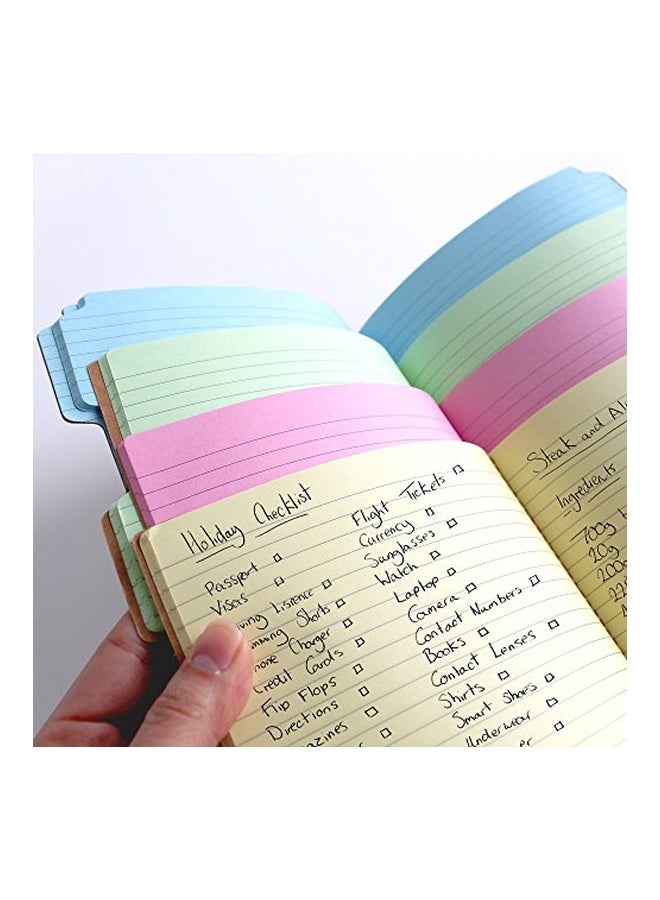 Holiday Checklist
Passport
Visas
ving Lisence
mming Shorts
hone Charger
Credit Cards
Flip Flops
Directions
azines
Flight Tickets
Currency
Sunglasses
Watch
Laptop
Camera
Contact Numbers
Books
Contact Lenses
Shirts
Smart Shoes
Underwear
er
Steak and Al
Ingredients
700g
20g
200g